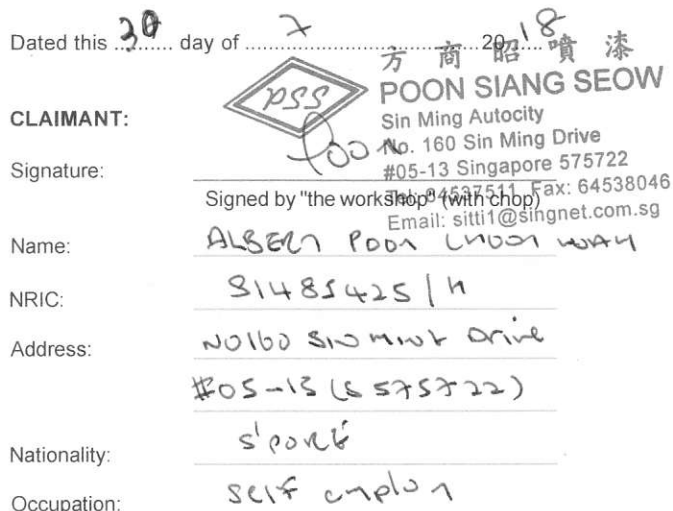 Dated this 30 day of 7 2018
方商昭噴漆
PSSP
POON SIANG SEOW
Sin Ming Autocity
No. 160 Sin Ming Drive
#05-13 Singapore 575722
Fax: 64538046
Email: sitti1@singnet.com.sg
CLAIMANT:
Signature: Poon
Signed by "the workshop" (with chop)
Name: ALBERT POON CHOON WAH
NRIC:
Address: NO160 SIN MING Drive
#05-13 (S 575722)
Nationality: S'PORE
Occupation: Self employ